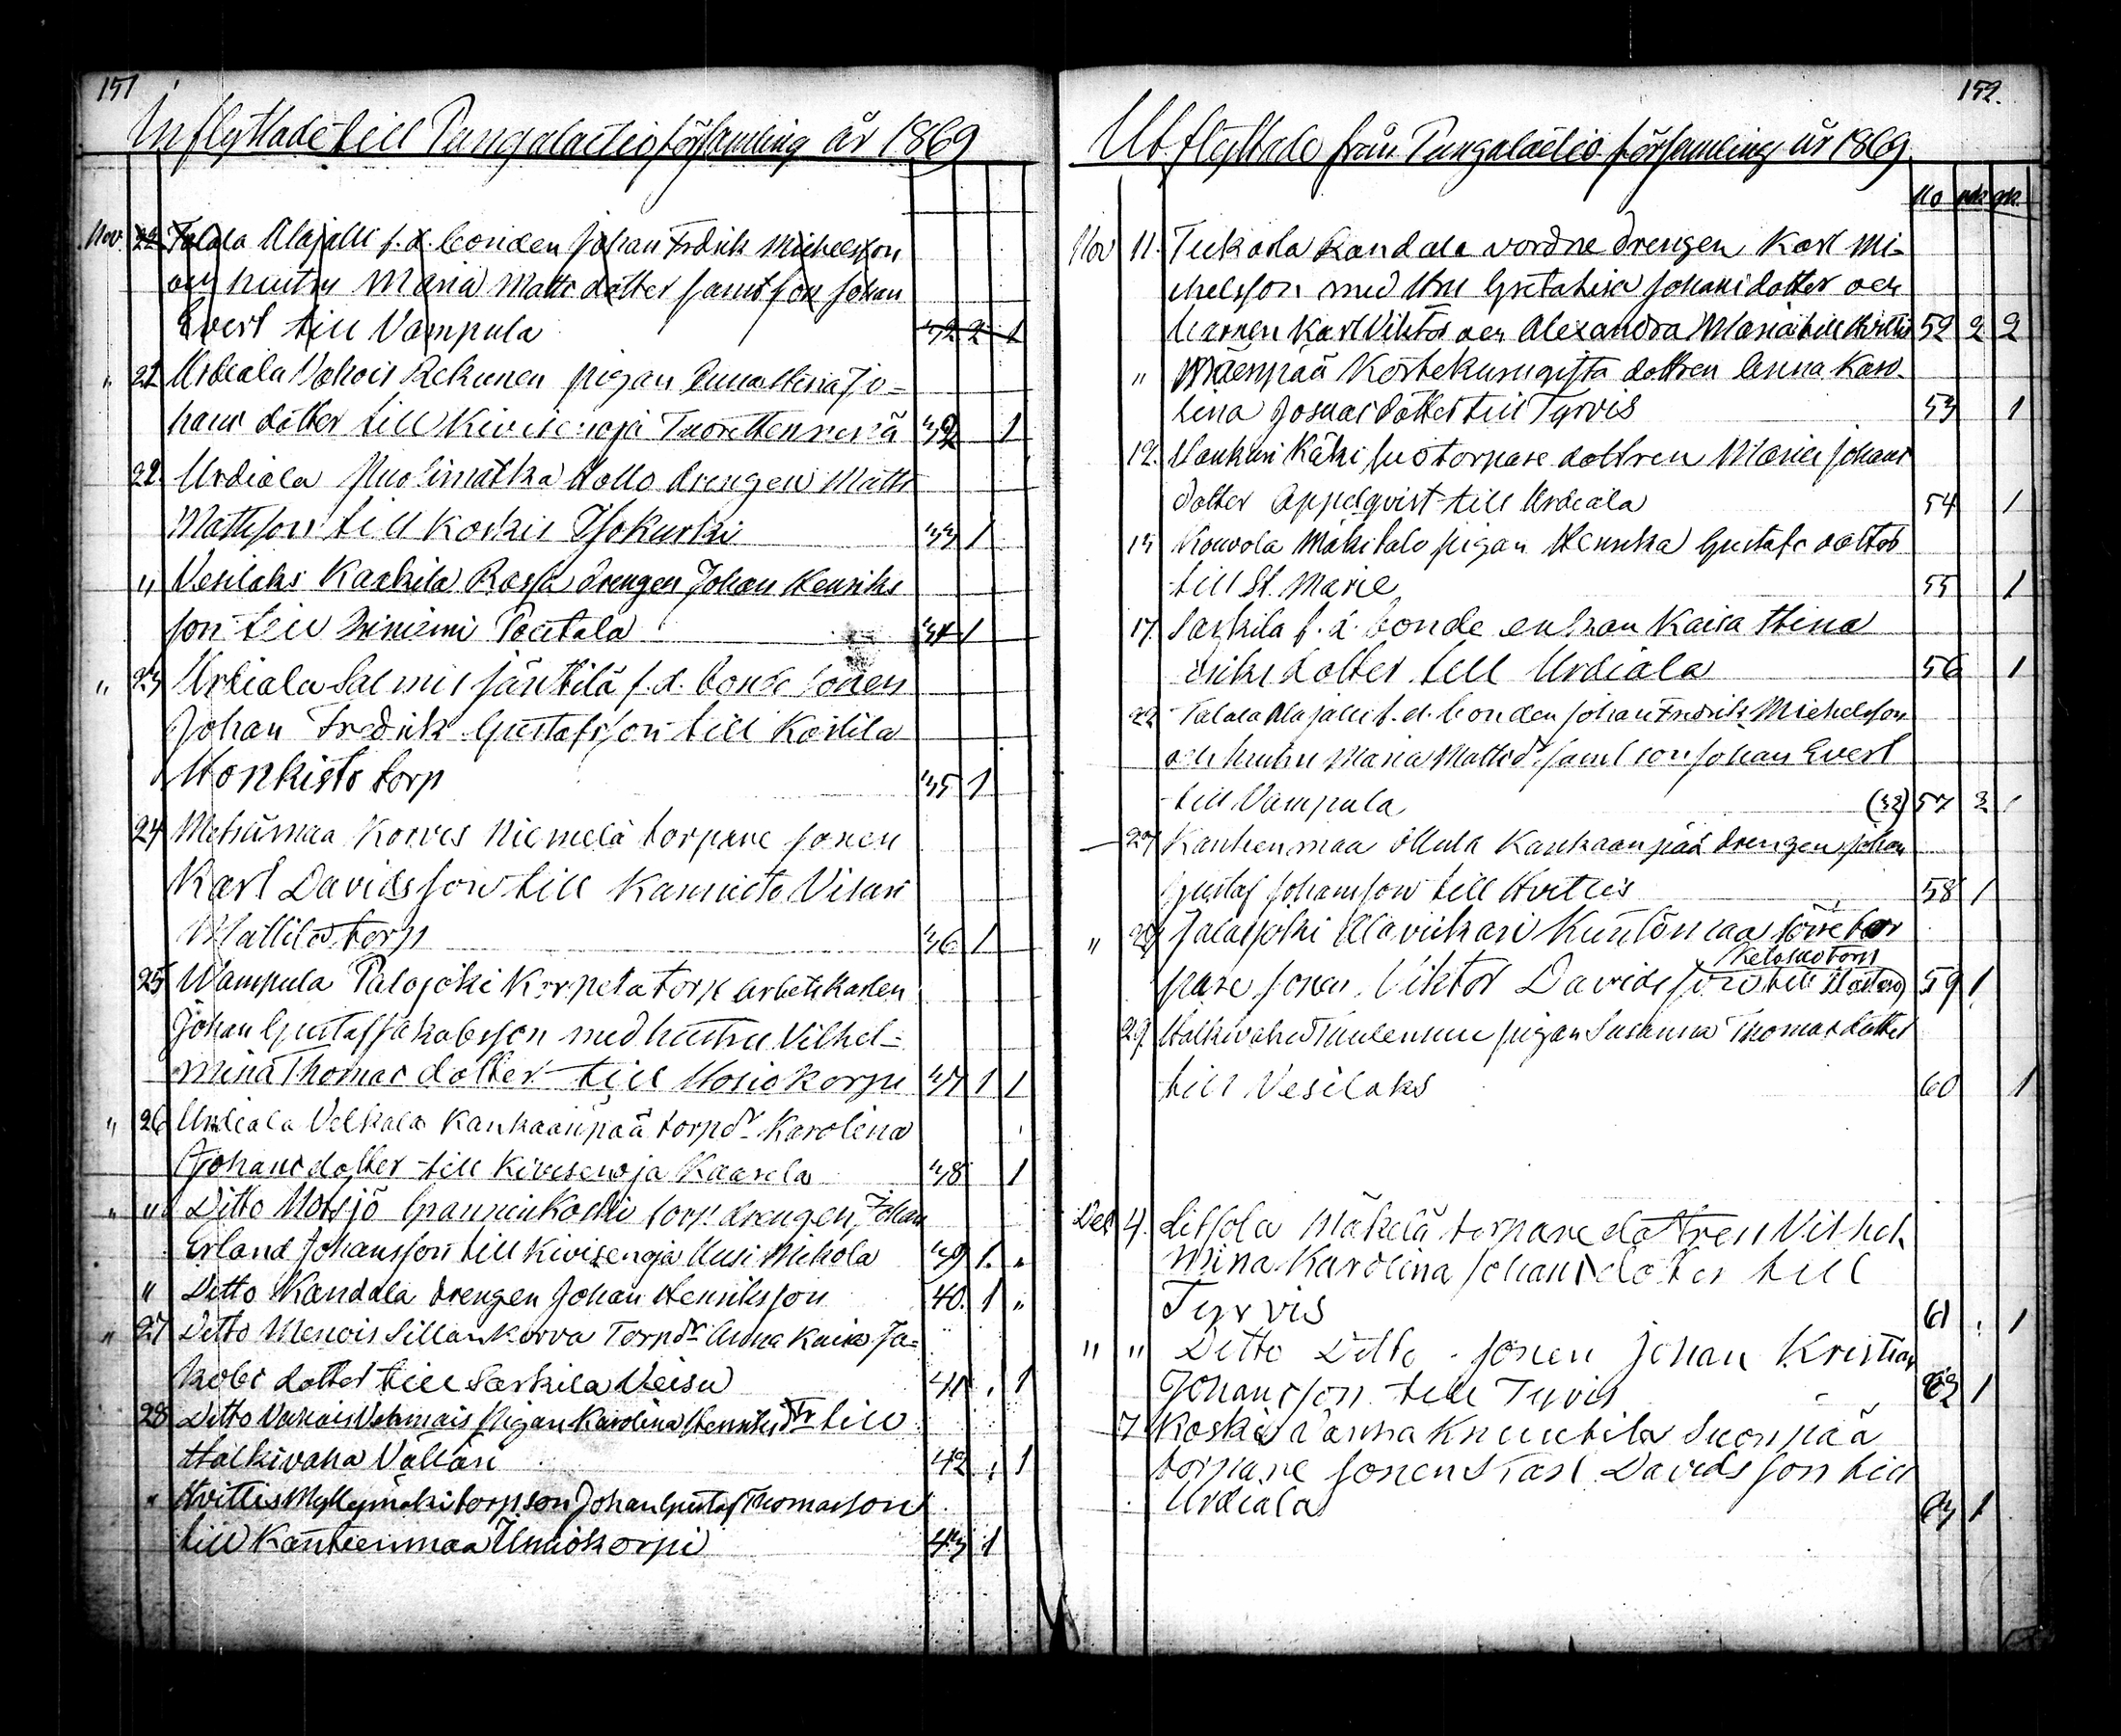 151
Inflyttade till Pungalaitio församling år 1869
Nov. 22 Talala Alajalli f.d. bonden Johan Fredrik Michelsson
och hustru Maria Matts dotter samt son Johan
Evert till Vampula 32 2 1
" 21 Urdiala Vahois Rekunen pigan Anna Stina Jo=
hans dotter till Kivisenoja 32 1
22 Urdiala Puolimatka Kollo drengen Matts
Mattsson till Koskis Isokurki 33 1
" Vesilaks Kaakila Rassa drengen Johan Henriks
son till Poutala 34 1
" 23 Urdiala Salmis Jänkilä f.d. bonde sonen
Johan Fredrik Gustafsson till Karkila
Honkisto torp 35 1
24 Metsämaa Korvis Niemelä torpare sonen
Karl Davidsson till Kannisto Vihari
Mattila torp 36 1
25 Wampula Palojoki Korpela torp arbetskarlen
Johan Gustaf Jakobsson med hustru Vilhel=
mina Thomas dotter till Uosiokorpi 37 1 1
" 26 Urdiala Velkala Kankaanpää torp dr Karolina
Johans dotter till Kivisenoja Kaarela 38 1
" " Ditto Notsjö torp drengen Johan
Erland Johansson till Kivisenoja Uusi Mikola 39 1 "
" Ditto Kandala drengen Johan Henriksson 40. 1 "
" 27 Ditto Menois Sillankorva Torp dr Anna Kaisa Ja=
kobs dotter till Sarkila Heisu 41 1
28 Ditto Vahois Vehmais Pigan Karolina Henriks dr till
Halkivaha Vallari 42 1
" Hvittis Myllymäki torp son Johan Gustaf Thomasson
till Kanteenmaa Uniokorpi 43 1
152.
Utflyttade från Pungalaitio församling år 1869
No mk qk.
Nov 11. Tuk Kandala vordne drengen Karl Mi=
chelsson med Hru Greta Lisa Johansdotter och
barnen Karl Viktor och Alexandra Maria till Hvittis 52 2 2
" Mäenpää dottren Anna Karo-
lina Josuas dotter till Tyrvis 53 1
12. Haukuri Käki torpare dottren Maria Johans
dotter Appelqvist till Urdiala 54 1
13 Kouvola Mäkitalo pigan Henrika Gustafs dotter
till St. Marie 55 1
17. Sarkila f.d. bonde enkan Kaisa Stina
Eriks dotter till Urdiala 56 1
22 Talala Alajalli f.d. bonden Johan Fredrik Michelsson
och hustru Maria Matts dr samt son Johan Evert
till Vampula (32) 57 2 1
27 Kanteenmaa Ollula Kankaanpää drengen Johan
Gustaf Johansson till Hvittis 58 1
" 28 Jalasjoki Ala tor
Kelosuo torp
pare sonen Viktor Davidsson till 59 1
29. Halkivaha pigan Susanna Thomas dotter
till Vesilaks 60 1
Dec 4. Liitsola Mäkelä torpare dottren Vilhel-
mina Karolina Johans dotter till
Tyrvis 61 1
" " Ditto Ditto sonen Johan Kristian
Johansson till Tyrvis 62 1
7 Koski Vanha Knuutila Suonpää
torpare sonen Karl Davidsson till
Urdiala 63 1